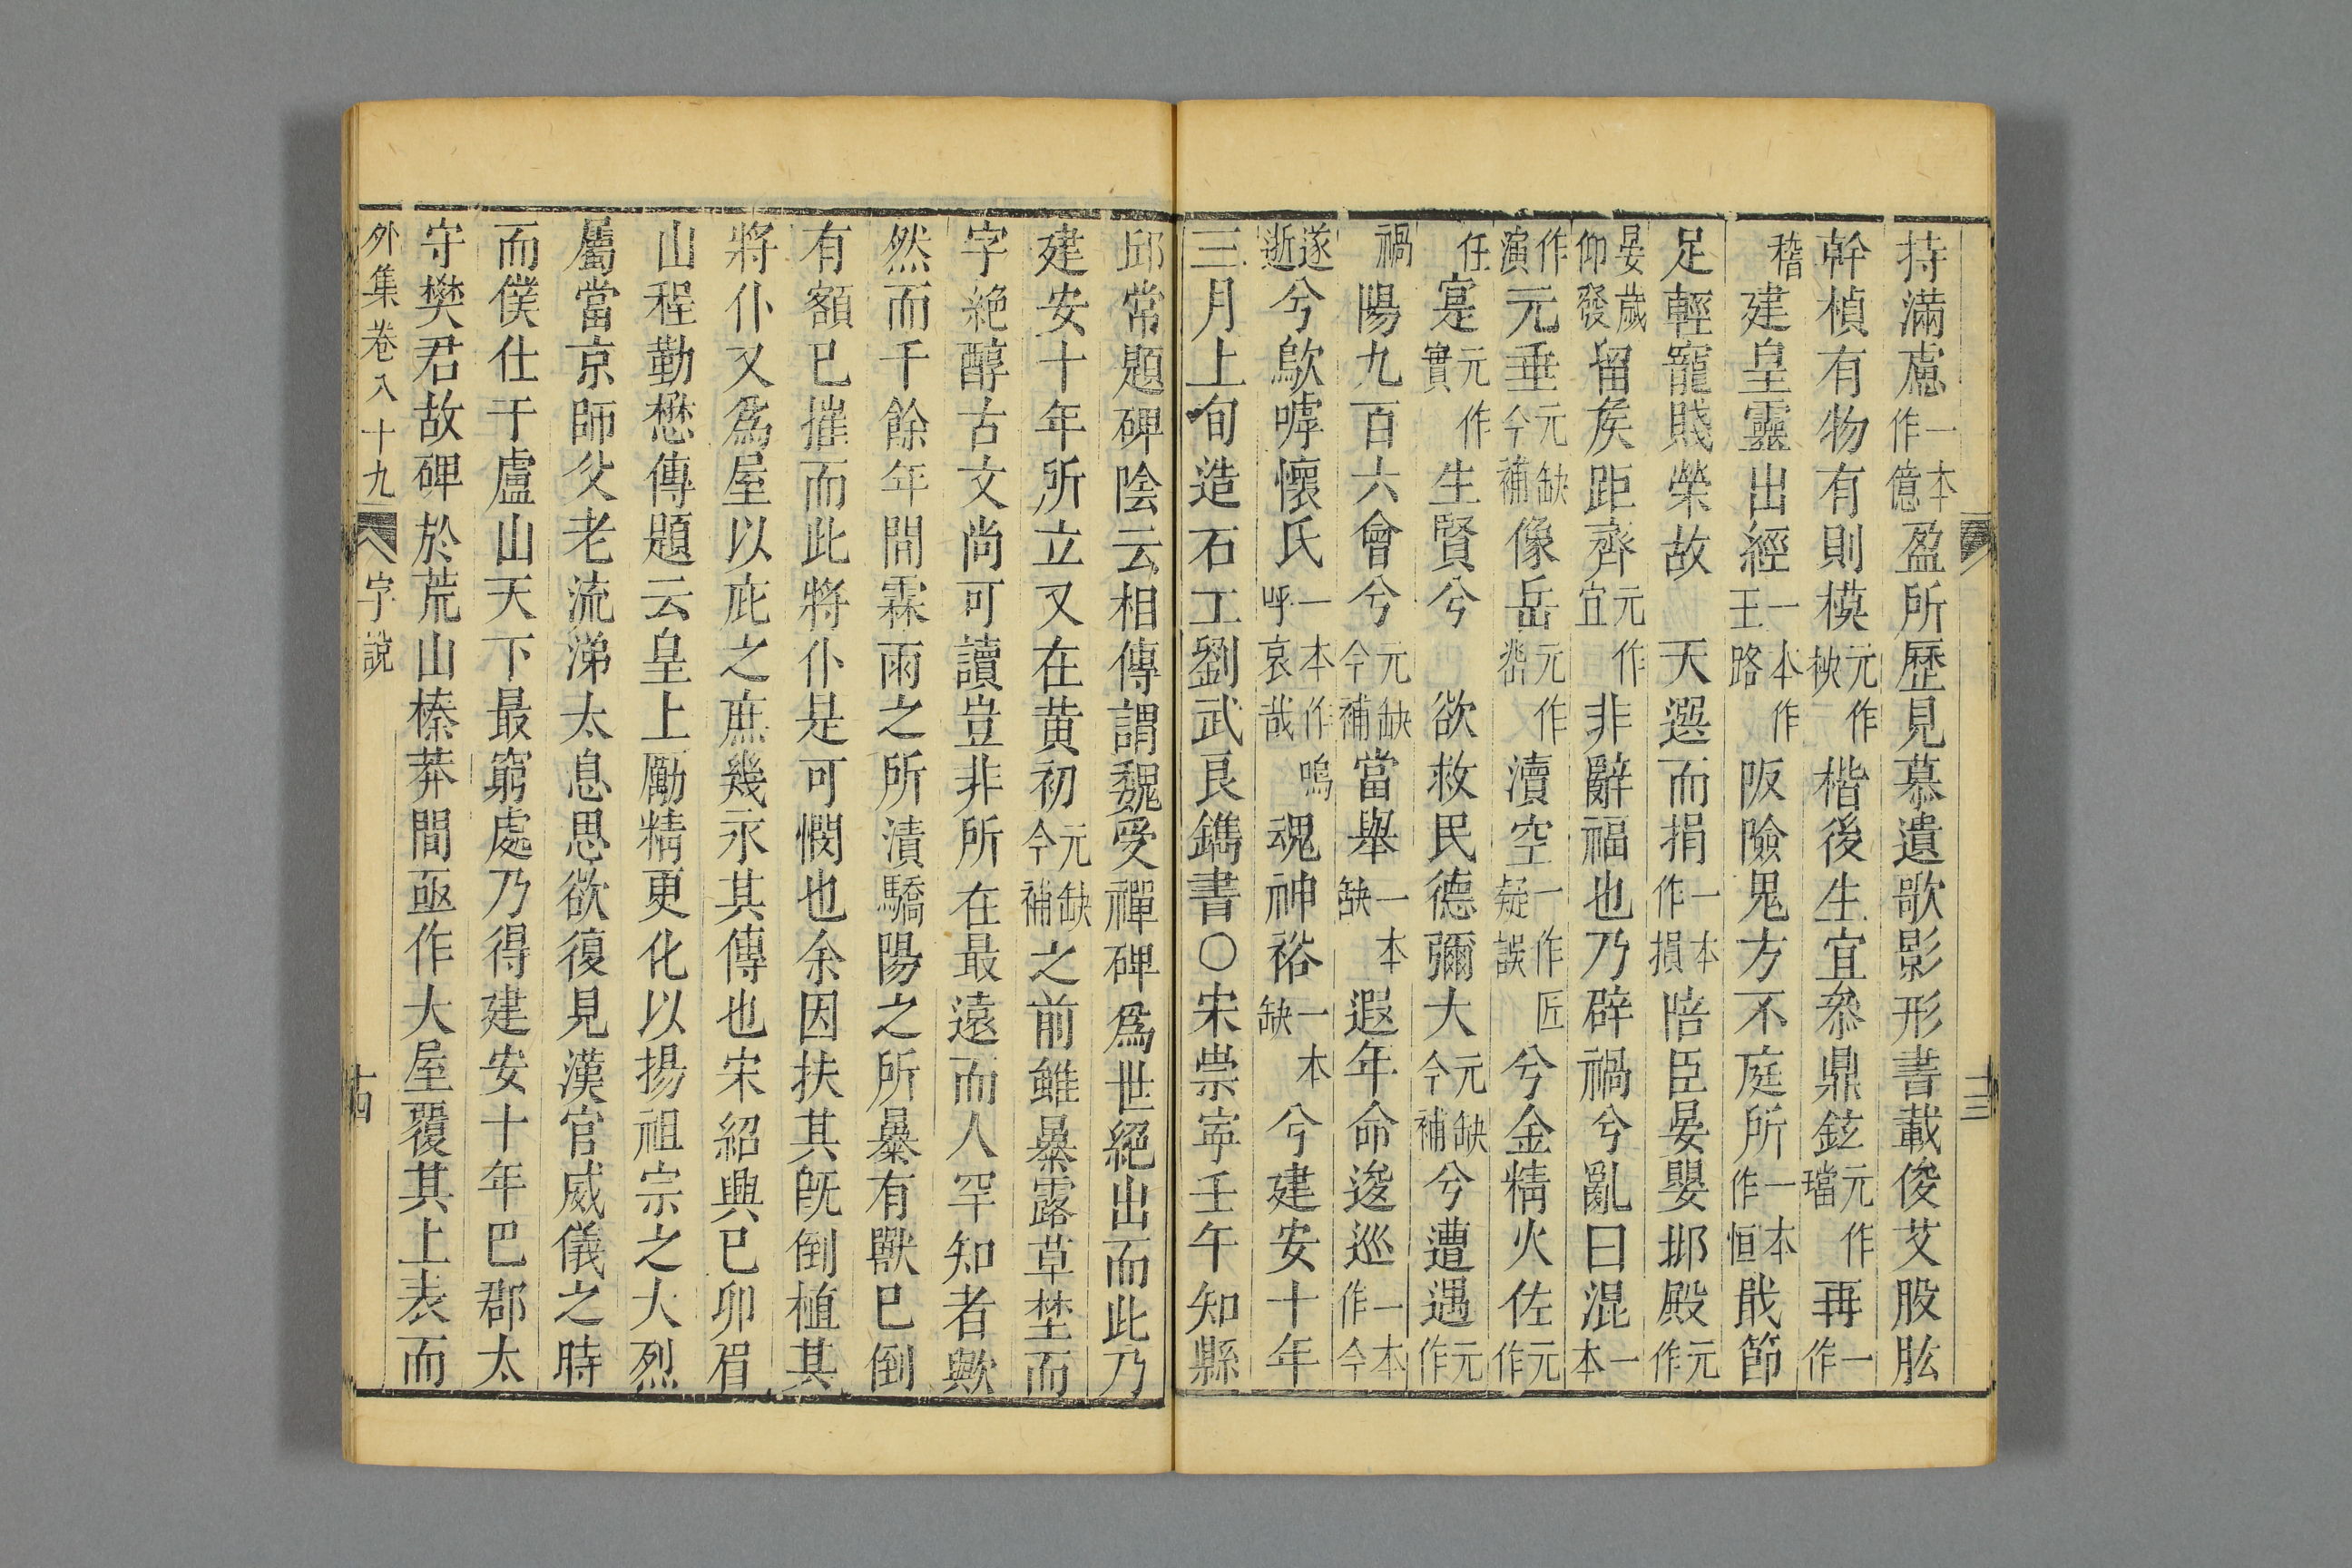 持滿慮一本作億盈所歷見慕遺歌影形書載俊艾股肱
幹楨有物有則模元作枎楷後生宜叅鼎鉉元作璫再一作
稽建皇靈出經一本作王路阪險鬼方不庭所一本作恒戢節
足輕寵賤榮故天選而捐一本作損陪臣晏嬰邶殿元作
晏歲仰發留矦距齊元作宜非辭福也乃辟禍兮亂曰混一本
作演元垂元缺今補像岳元作瀆空一作疑誤匠兮金精火佐元作
任寔元作實生賢兮欲救民德彌大元缺今補兮遭遇元作
禍陽九百六會兮元缺今補當舉一本缺遐年命逡巡一本作今
遂逝兮歍嘑懷氏一本作嗚呼哀哉魂神裕一本缺兮建安十年
三月上旬造石工劉武良鐫書〇宋崇寧壬午知縣
邱常題碑陰云相傳謂魏受禪碑爲世絕出而此乃
建安十年所立又在黄初元缺今補之前雖暴露草埜而
字絕醇古文尚可讀豈非所在最遠而人罕知者歟
然而千餘年間霖雨之所漬驕陽之所暴有獸已倒
有額已摧而此將仆是可憫也余因扶其旣倒植其
將仆又爲屋以庇之庶幾永其傳也宋紹興已卯眉
山程勤懋傳題云皇上勵精更化以揚祖宗之大烈
屬當京師父老流涕太息思欲復見漢官威儀之時
而僕仕于盧山天下最窮處乃得建安十年巴郡太
守樊君故碑於荒山榛莽間亟作大屋覆其上表而
外集卷八十九 字說 十四